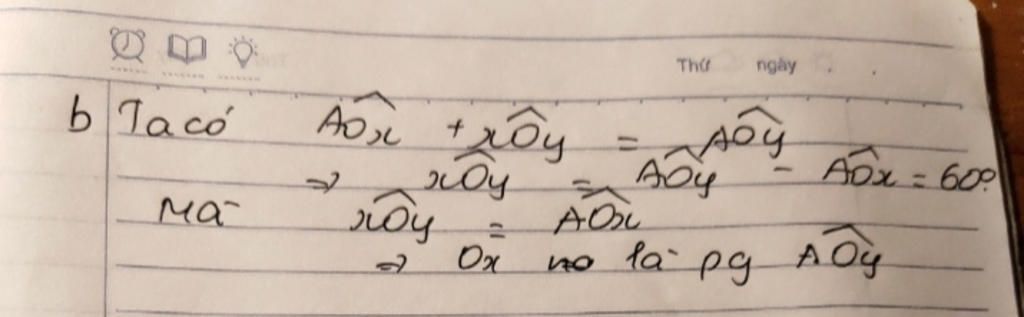 Thứ ngày
b Ta có AOx̂ + xÔy = AÔy
⇒ xÔy = AÔy - AÔx = 60°
Mà xÔy = AÔx
⇒ Ox là pg AÔy